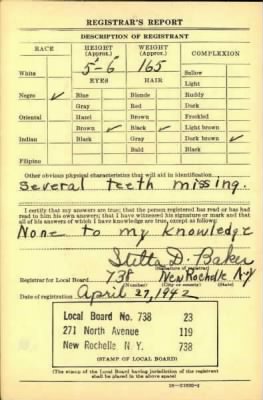 REGISTRAR'S REPORT
DESCRIPTION OF REGISTRANT
RACE HEIGHT (Approx.) WEIGHT (Approx.) COMPLEXION
5'-6" 165
White Sallow
EYES HAIR Light
Negro ✓ Blue Blonde Ruddy
Gray Red Dark
Oriental Hazel Brown Freckled
Brown ✓ Black ✓ Light brown
Indian Black Gray Dark brown ✓
Bald Black
Filipino
Other obvious physical characteristics that will aid in identification
Several teeth missing.
I certify that my answers are true; that the person registered has read or has had
read to him his own answers; that I have witnessed his signature or mark and that
all of his answers of which I have knowledge are true, except as follows:
None to my knowledge
D. Baker
(Signature of registrar)
Registrar for Local Board 738 New Rochelle N.Y
(Number) (City or county) (State)
Date of registration April 27, 1942
Local Board No. 738 23
271 North Avenue 119
New Rochelle N. Y. 738
(STAMP OF LOCAL BOARD)
(The stamp of the Local Board having jurisdiction of the registrant
shall be placed in the above space)